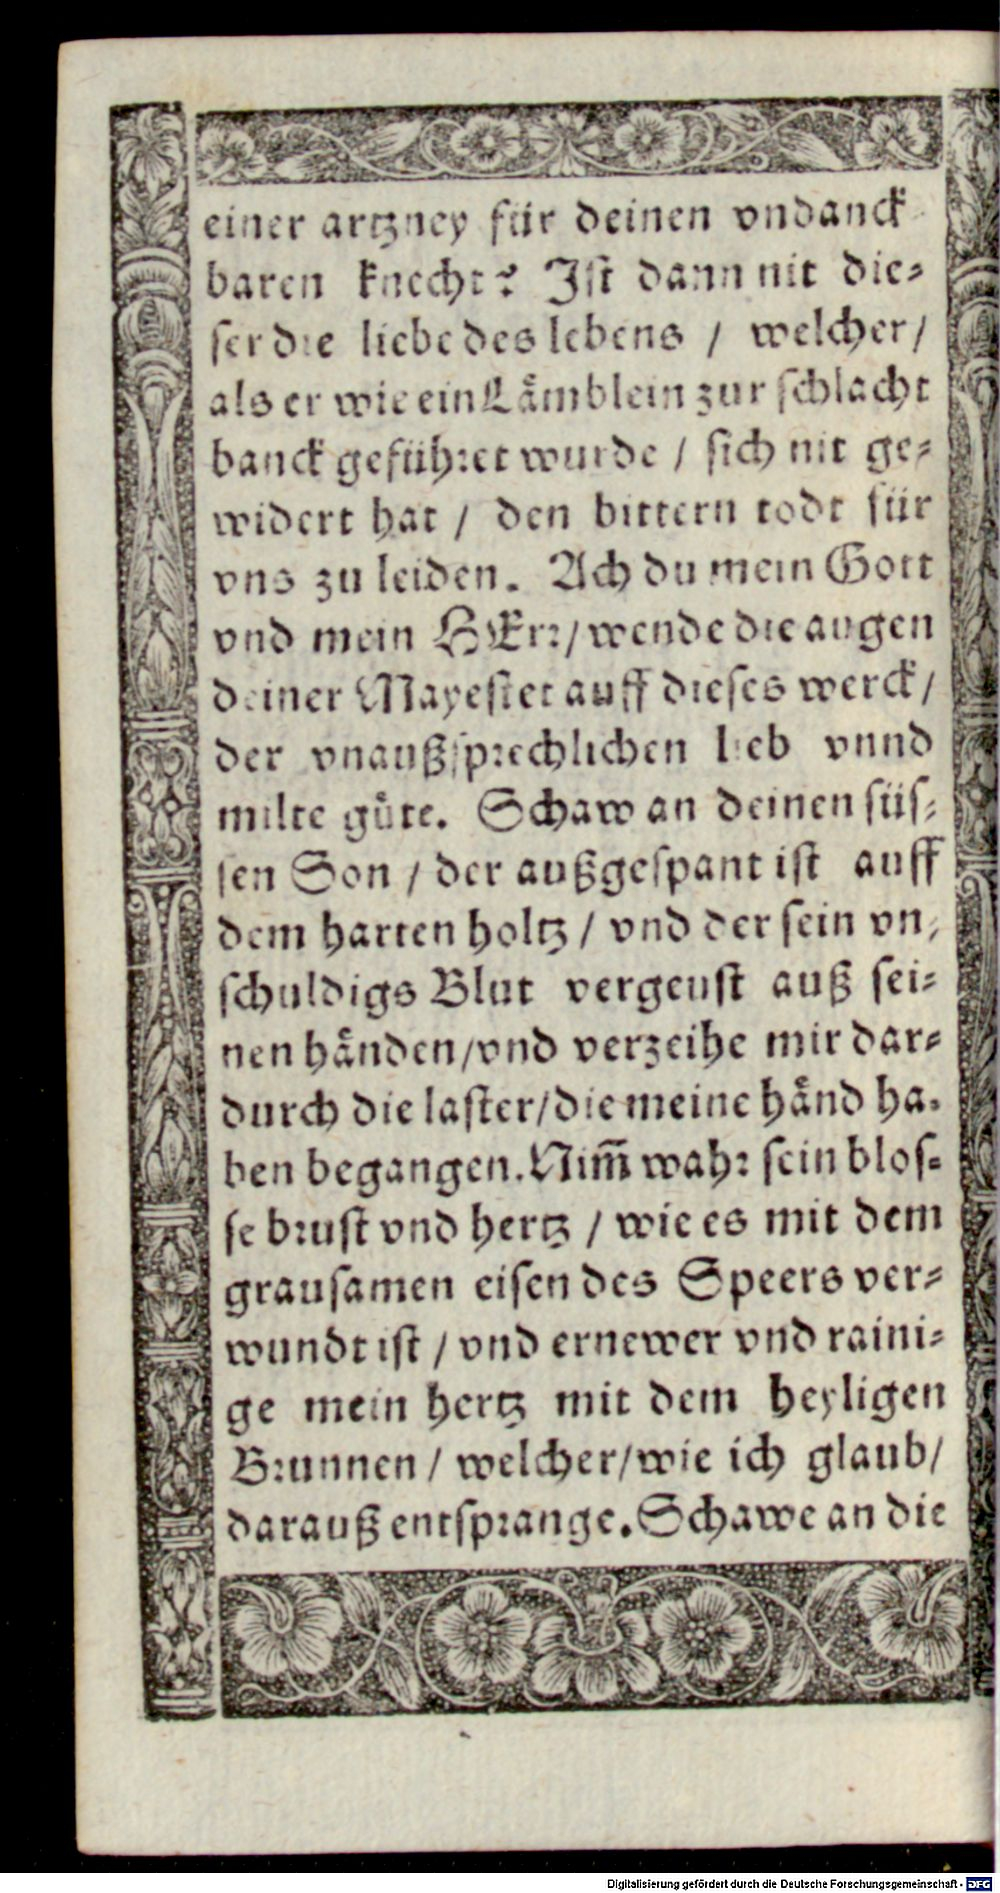 einer artzney für deinen vndanck
baren knecht? Jst dann nit die⸗
ser die liebe des lebens / welcher/
als er wie ein Lämblein zur schlacht
banck geführet wurde / sich nit ge⸗
widert hat / den bittern todt für
vns zu leiden. Ach du mein Gott
vnd mein HErr/ wende die augen
deiner Mayestet auff dieses werck/
der vnaußsprechlichen lieb vnnd
milte güte. Schaw an deinen süs⸗
sen Son / der außgespant ist auff
dem harten holtz / vnd der sein vn⸗
schuldigs Blut vergeust auß sei⸗
nen händen/vnd verzeihe mir dar⸗
durch die laster/die meine händ ha⸗
ben begangen. Nim̃ wahr sein blos⸗
se brust vnd hertz / wie es mit dem
grausamen eisen des Speers ver⸗
wundt ist / vnd ernewer vnd raini⸗
ge mein hertz mit dem heyligen
Brunnen / welcher/wie ich glaub/
darauß entsprange. Schawe an die
Digitalisierung gefördert durch die Deutsche Forschungsgemeinschaft - DFG